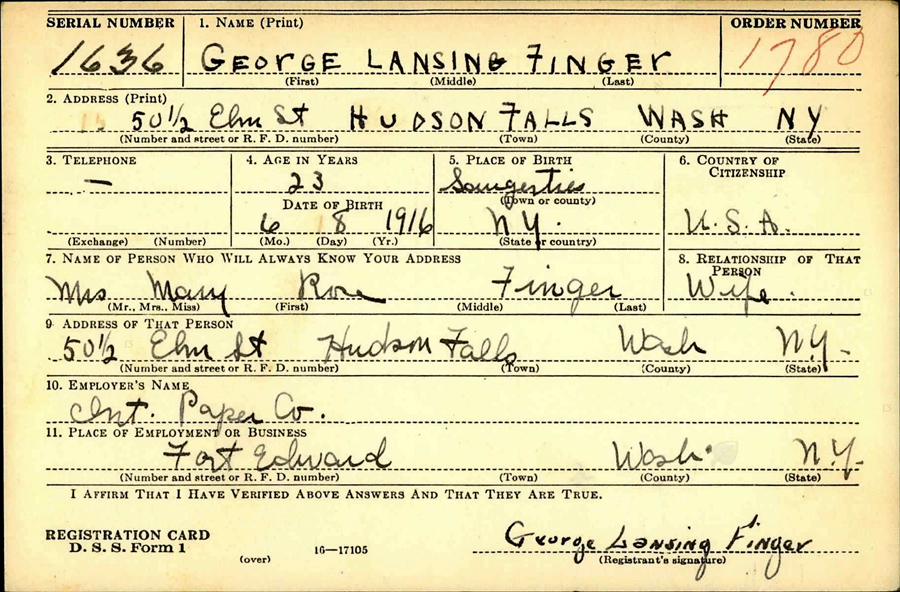 SERIAL NUMBER 1. NAME (Print) ORDER NUMBER
1636 GEORGE LANSING FINGER 1780
(First) (Middle) (Last)
2. ADDRESS (Print)
50 1/2 Elm St HUDSON FALLS WASH NY
(Number and street or R. F. D. number) (Town) (County) (State)
3. TELEPHONE 4. AGE IN YEARS 5. PLACE OF BIRTH 6. COUNTRY OF CITIZENSHIP
— 23 Saugerties
(Town or county)
DATE OF BIRTH
6 18 1916 N Y. U.S.A.
(Exchange) (Number) (Mo.) (Day) (Yr.) (State or country)
7. NAME OF PERSON WHO WILL ALWAYS KNOW YOUR ADDRESS 8. RELATIONSHIP OF THAT PERSON
Mrs Mary Rose Finger Wife.
(Mr., Mrs., Miss) (First) (Middle) (Last)
9. ADDRESS OF THAT PERSON
50 1/2 Elm St Hudson Falls Wash N.Y.
(Number and street or R. F. D. number) (Town) (County) (State)
10. EMPLOYER'S NAME
Int. Paper Co.
11. PLACE OF EMPLOYMENT OR BUSINESS
Fort Edward Wash. N.Y.
(Number and street or R. F. D. number) (Town) (County) (State)
I AFFIRM THAT I HAVE VERIFIED ABOVE ANSWERS AND THAT THEY ARE TRUE.
REGISTRATION CARD
D. S. S. Form 1 16—17105 George Lansing Finger
(over) (Registrant's signature)